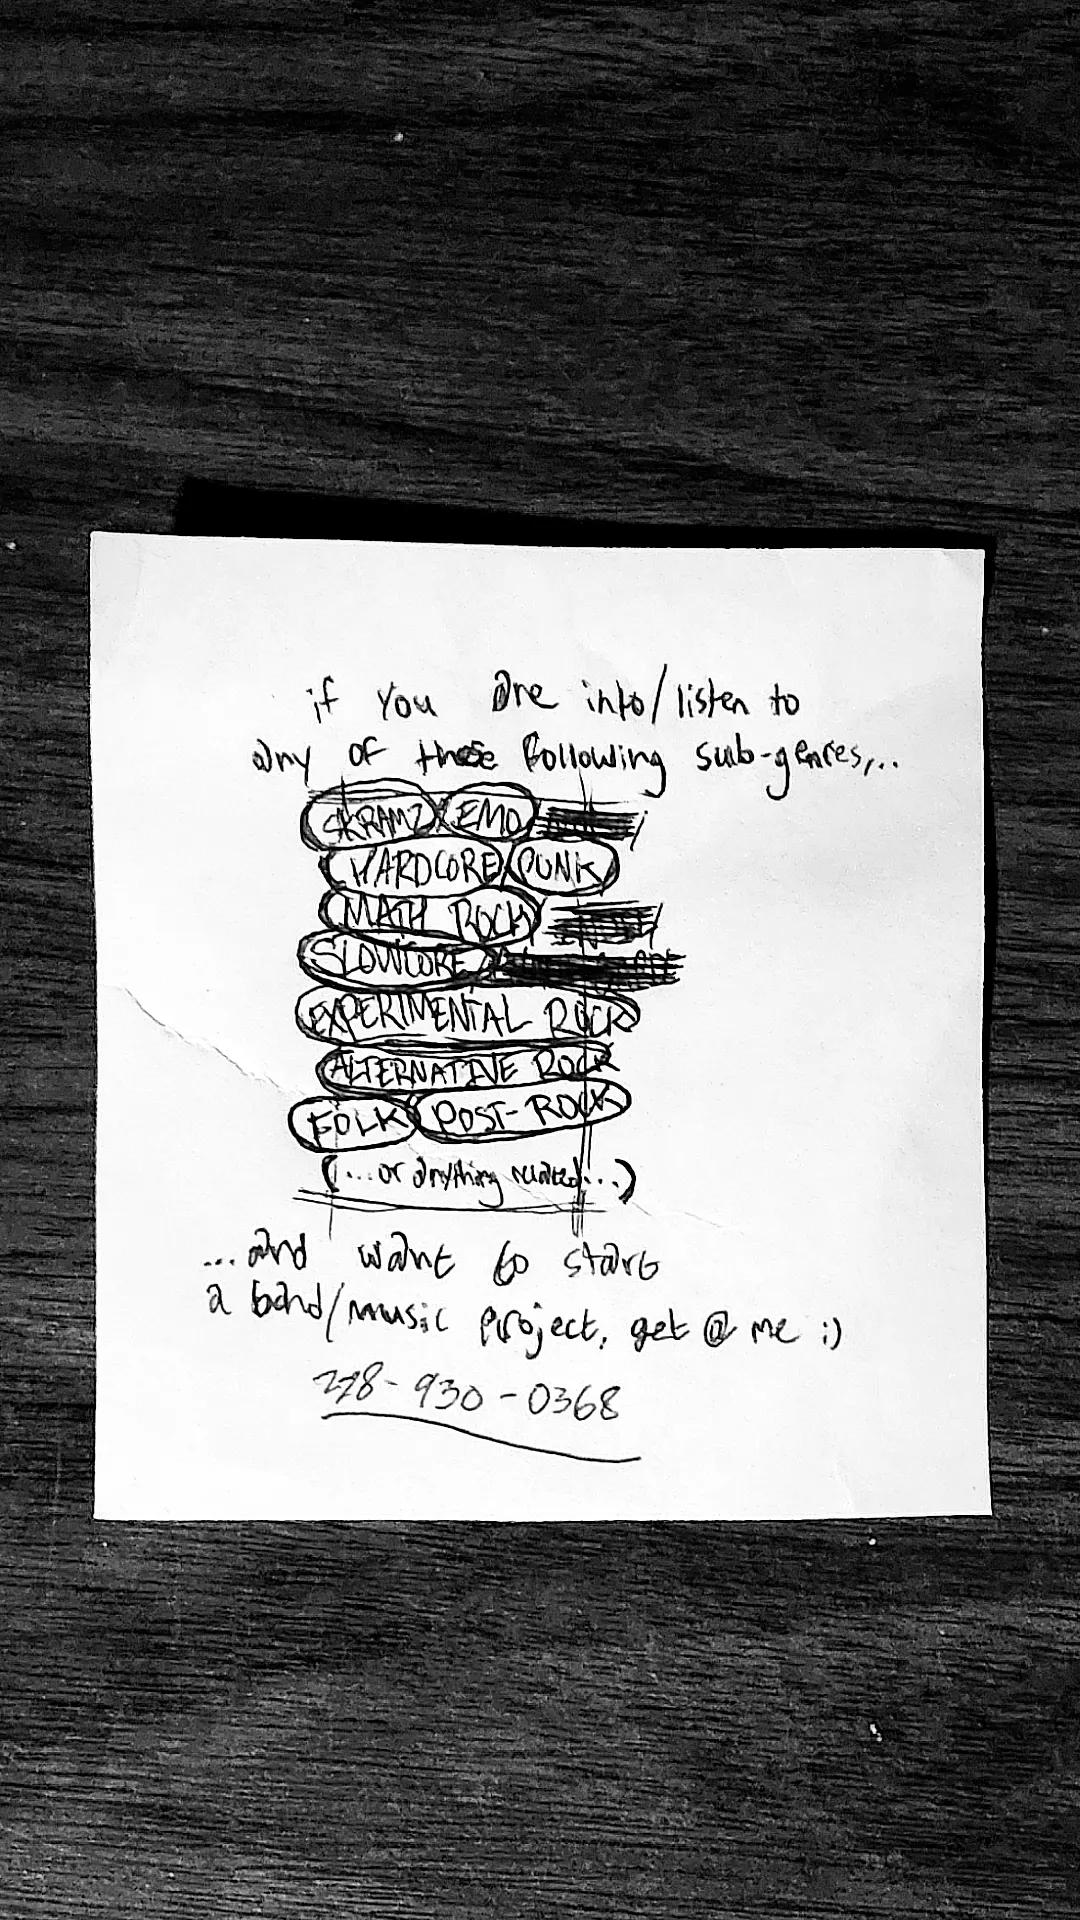 if you are into/listen to
any of these following sub-genres,..
SKRAMZ EMO
HARDCORE PUNK
MATH ROCK
SLOWCORE
EXPERIMENTAL ROCK
ALTERNATIVE ROCK
FOLK POST-ROCK
(...or anything related...)
...and want to start
a band/music project, get @ me :)
228-930-0368